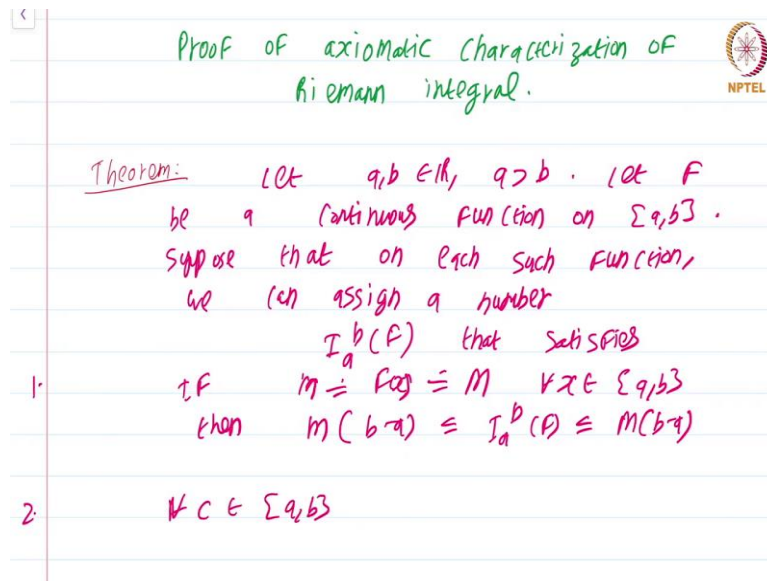 Proof of axiomatic characterization of
Riemann integral.
NPTEL
Theorem: Let a,b ∈ ℝ, a > b. Let F
be a continuous function on [a,b].
Suppose that on each such function,
we can assign a number
I_a^b(F) that satisfies
1. If m ≤ F(x) ≤ M ∀x ∈ [a,b]
then m(b-a) ≤ I_a^b(F) ≤ M(b-a)
2. ∀ c ∈ [a,b]